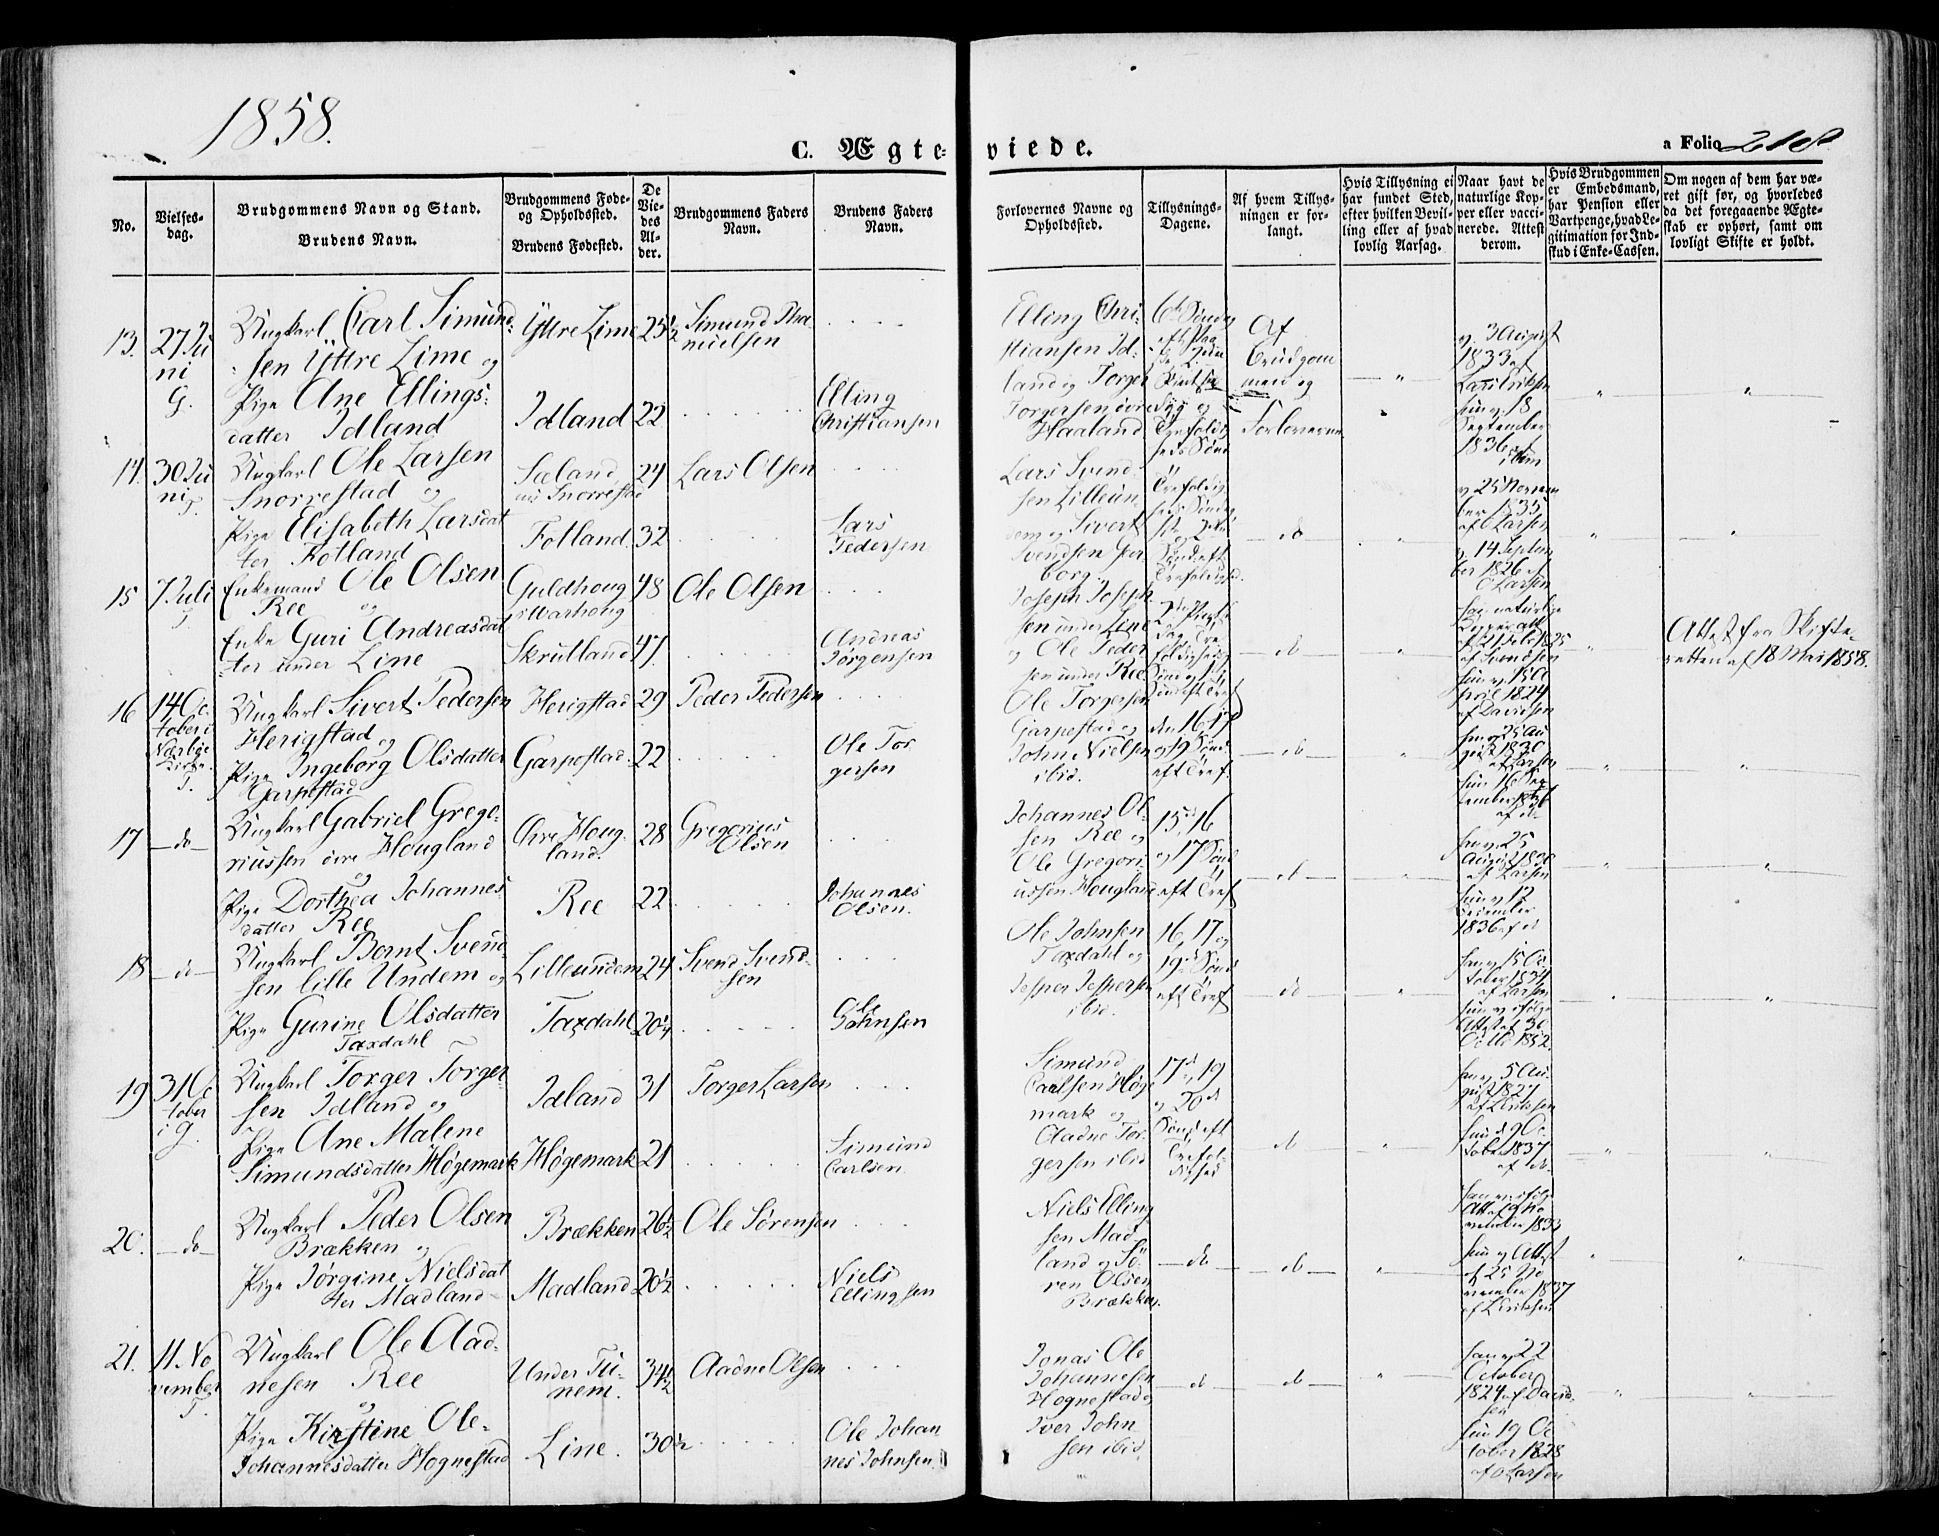 1858.
C. Ægte-
viede.
a Folio 218
No.
Vielses-
dag.
Brudgommens Navn og Stand.
Brudens Navn.
Brudgommens Føde-
og Opholdssted.
Brudens Fødested.
De
Vie-
des
Al-
der.
Brudgommens Faders
Navn.
Brudens Faders
Navn.
Forlovernes Navne og
Opholdssted.
Tillysnings-
Dagene.
Af hvem Tillys-
ningen er for-
langt.
Hvis Tillysning ei
har fundet Sted,
efter hvilken Bevil-
ling eller af hvad
lovlig Aarsag.
Naar havt de
naturlige Kop-
per eller vacci-
nerede. Attest
derom.
Hvis Brudgommen
er Embedsmand,
har Pension eller
Vartpenge, hvad Le-
gitimation for Ind-
skud i Enke-Cassen.
Om nogen af dem har væ-
ret gift før, og hvorledes
da det foregaaende Ægte-
skab er ophørt, samt om
lovligt Skifte er holdt.
13. 27 Ju
ni
G.
Ungkarl Carl Simund-
sen Yttre Lime og
Pige Ane Ellings-
datter Idland
Yttre Lime 25½
Idland 22
Simund Tha-
nuelsen
Elling
Christiansen
Elling Chri-
stiansen Id-
land og Torger
Torgersen øvre
Haaland
Af
Brudgom-
men og
Forloverne
v. 3 August
1833 af
Lars Eriksen
hun v. 18
September
1836 af
ibm
14. 30 Ju
ni
T.
Ungkarl Ole Larsen
Snorrestad og
Pige Elisabeth Larsdat
ter Fotland
Sæland
nu Snorrestad 24
Fotland 32
Lars Olsen
Lars
Pedersen
Lars Svend-
sen Lilleun-
dem og Sivert
Svendsen Ger
borg.
do
v. 25 Novem
ber 1833
af O Larsen
v. 14 Septem
ber 1826 af
O Larsen
15 7 Juli
Enkemand Ole Olsen
Ree og
Enke Guri Andreasdat
ter under Line
Guldhoug
i Warhoug 48
Skrutland 47
Ole Olsen
Andreas
Jørgensen
Joseph Joseph
sen under Line
og Ole Peder
sen under Ree
do
Attest fra Skifte-
retten af 18 Mai 1858.
16 14 Oc
tober i
Nærbøe
Kirke.
T.
Ungkarl Sivert Pedersen
Herigstad og
Pige Ingeborg Olsdatter
Garpestad
Herigstad 29
Garpestad 22
Peder Pedersen
Ole Tor
gersen
Ole Torgersen
Garpestad og
John Nielsen
ibid.
den 16, 17
og 19 Sønd
eft Tref.
do
17 do
Ungkarl Gabriel Grego-
riussen øvre Hougland
og
Pige Dorthea Johannes
datter Ree
Øvre Houg-
land. 28
Ree 22
Gregorius
Olsen
Johannes
Olsen.
Johannes Ol-
sen Ree og
Ole Gregori-
ussen Hougland
15, 16
og 17 Sønd
eft Tref
do
han v. 25
August 1830
af Larsen
hun v. 12
December
1836 af do
18 do
Ungkarl Bernt Svend-
sen lille Undem og
Pige Gurine Olsdatter
Taxdahl
Lilleundem 24
Taxdahl 20¼
Svend Svend-
sen
Ole
Johnsen
Ole Johnsen
Taxdahl og
Jesper Jespersen
ibid.
16, 17 og
19 Sønd
eft Tref
do
han v. 15 Oc
tober 1834
af Larsen
hun v. ifølge
Attest af 30
Octb 1852.
19 31 Oc
tober
i G.
Ungkarl Torger Torger-
sen Idland og
Pige Ane Malene
Simundsdatter Høgemark
Idland 31
Høgemark 21
Torger Larsen
Simund
Carlsen
Simund
Carlsen Høge
mark og
Aadne Tor-
gersen ibid
17d, 19
og 20de
Sønd eft
Trefol-
dighed
do
han v. 5 Au-
gust 1827
af L Eriksen
hun d. 9 Oc
tober 1837
af do
20. do
Ungkarl Peder Olsen
Brækken og
Pige Jørgine Nielsdat
ter Madland
Brækken 26½
Madland 20½
Ole Sørensen
Niels
Ellingsen
Niels Elling
sen Mad-
land og Sö-
ren Olsen
Brækken.
do
do
hun v. Attest
af 25 No
vember 1837
af L Eriksen
21. 11 No
vember
T.
Ungkarl Ole Aad-
nesen Ree
og
Pige Kirstine Ole-
Johannesdatter Hognestad
Under Tu-
nem. 34½
Line. 30½
Aadne Olsen
Ole Johan
nes Johnsen.
Jonas Ole
Johannesen
Hognestad og
Iver John
sen ibid
do
do
han v. 22
October
1824 af David-
sen
hun 19 Oc
tober 1828
af O Larsen